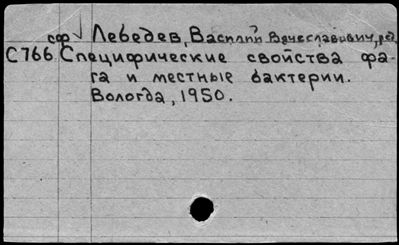 сф √ Лебедев, Василий Вячеславович, ред.
С766 Специфические свойства фа-
га и местные бактерии.
Вологда, 1950.